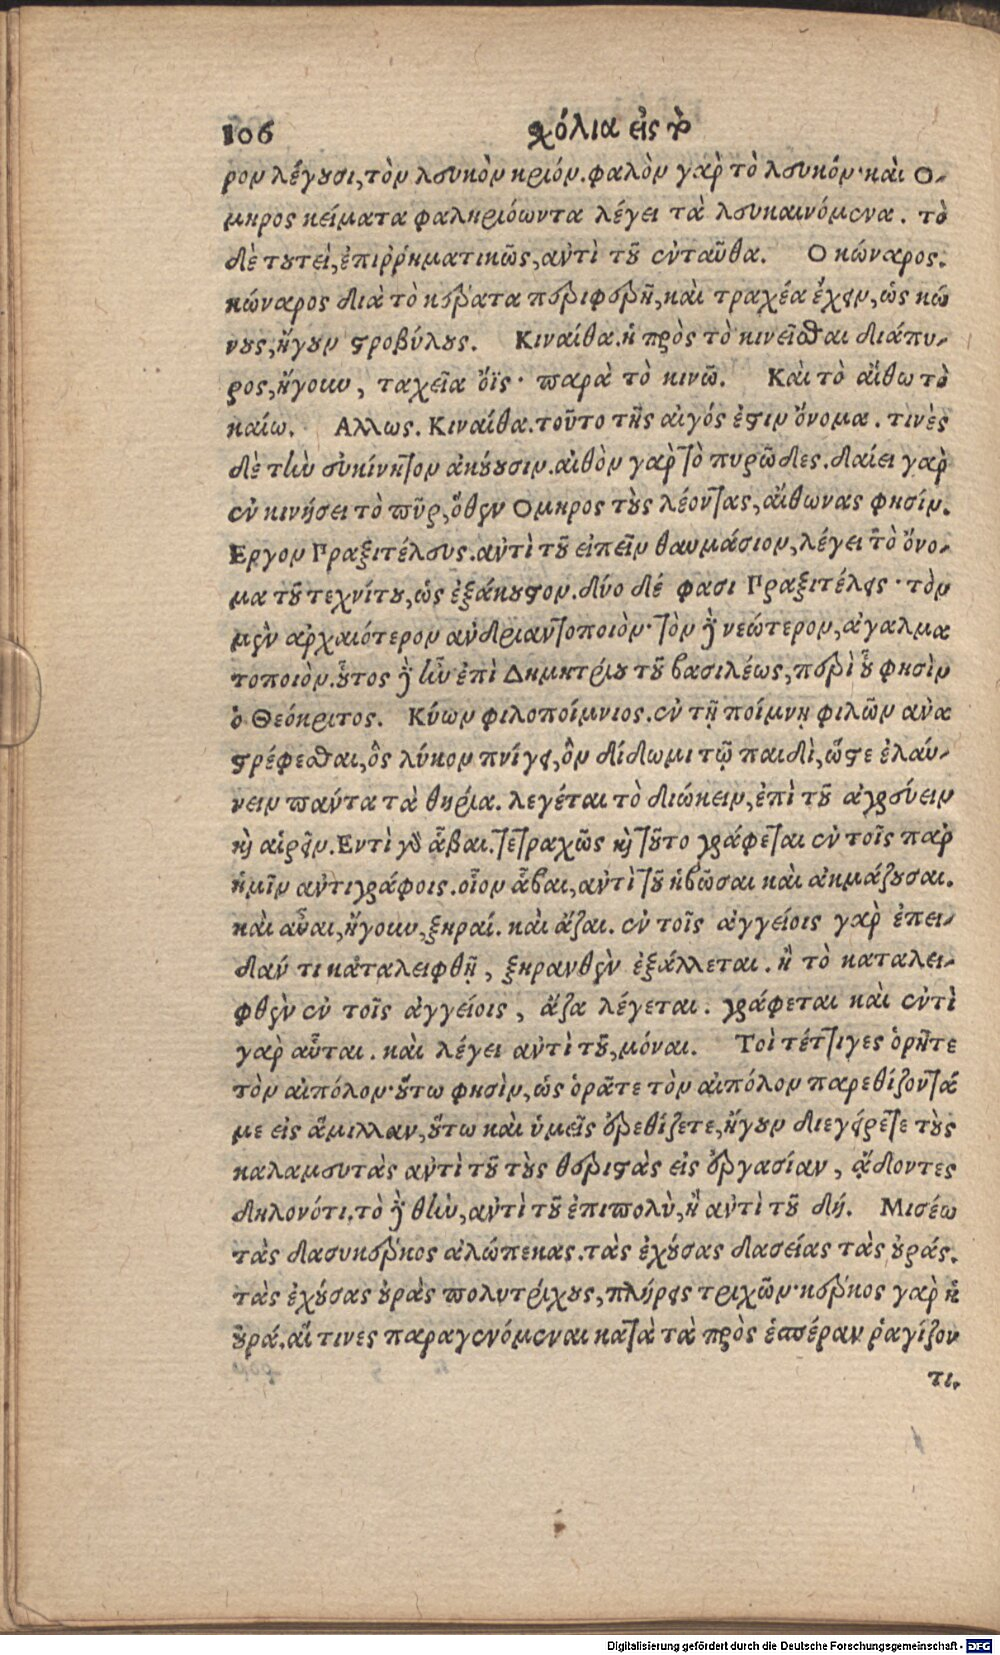 106 σχόλια εἰς τὸ
ρον λέγουσι, τὸν λευκὸν κριόν. φαλὸν γαρ τὸ λευκόν· καὶ Ο-
μηρος κείματα φαληριόωντα λέγει τὰ λευκαινόμενα. τὸ
δὲ τουτεὶ, ἐπιῤῥηματικῶς, αντὶ τοῦ ενταῦθα. Ο κώναρος.
κώναρος διὰ τὸ κέρατα περιφερῆ, καὶ τραχέα ἔχειν, ὡς κώ
νους, ἤγουν στροβύλους. Κιναίθα. ἡ πρὸς τὸ κινεῖσθαι διάπυ-
ρος, ἤγουν, ταχεῖα ὄϊς· παρὰ τὸ κινῶ. Καὶ τὸ αἴθω τὸ
καίω. Αλλως. Κιναίθα. τοῦτο τῆς αἰγός ἐστιν ὄνομα. τινὲς
δὲ τὴν εὐκίνητον ἀκούουσιν. αἰθὸν γαρ τὸ πυρῶδες. δαίει γαρ
εν κινήσει τὸ πῦρ, ὅθεν Ομηρος τοὺς λέοντας, αἴθωνας φησίν.
Εργον Πραξιτέλευς. αντὶ τοῦ εἰπεῖν θαυμάσιον, λέγει τὸ ὄνο-
μα τοῦ τεχνίτου, ὡς ἐξάκουστον. δύο δέ φασι Πραξιτέλεις· τὸν
μεν αρχαιότερον ανδριαντοποιὸν· τὸν δὲ νεώτερον, ἀγαλμα
τοποιὸν. οὗτος δὲ ἦν ἐπὶ Δημητρίου τοῦ βασιλέως, περὶ οὗ φησὶν
ὁ Θεόκριτος. Κύων φιλοποίμνιος. εν τῇ ποίμνῃ φιλῶν ανα
στρέφεσθαι, ὃς λύκον πνίγει, ὃν δίδωμι τῷ παιδὶ, ὥστε ἐλαύ-
νειν πάντα τὰ θηρία. λεγέται τὸ διώκειν, ἐπὶ τοῦ ἀγρεύειν
καὶ αἱρεῖν. Εντὶ γὰρ ἇβαι. τετραχῶς καὶ τοῦτο γράφεται εν τοῖς παρ
ἡμῖν αντιγράφοις. οἷον ἇβαι, αντὶ τοῦ ἡβῶσαι καὶ ἀκμάζουσαι.
καὶ αὖαι, ἤγουν, ξηραί. καὶ ἄζαι. εν τοῖς ἀγγείοις γαρ ἐπει-
δάν τι καταλειφθῇ, ξηρανθεν ἐξάλλεται. ἢ τὸ καταλει-
φθεν εν τοῖς ἀγγείοις, ἄζα λέγεται. γράφεται καὶ εντὶ
γαρ αὗται. καὶ λέγει αντὶ τοῦ, μόναι. Τοὶ τέττιγες ὁρῆτε
τὸν αἰπόλον· οὕτω φησὶν, ὡς ὁρᾶτε τὸν αἰπόλον παρεθίζοντά
με εἰς ἅμιλλαν, οὕτω καὶ ὑμεῖς ἐρεθίζετε, ἤγουν διεγείρετε τοὺς
καλαμευτὰς αντὶ τοῦ τοὺς θεριστὰς εἰς ἐργασίαν, ᾄδοντες
δηλονότι. τὸ δὲ θὴν, αντὶ τοῦ ἐπιπολὺ, ἢ αντὶ τοῦ δή. Μισέω
τὰς δασυκέρκος αλώπεκας. τὰς ἐχούσας δασείας τὰς οὐράς.
τὰς ἐχούσας οὐρὰς πολυτρίχους, πλήρεις τριχῶν· κέρκος γαρ ἡ
οὐρά. αἵ τινες παραγενόμεναι κατὰ τὰ πρὸς ἑσπέραν ῥαγίζον
τι.
Digitalisierung gefördert durch die Deutsche Forschungsgemeinschaft - DFG